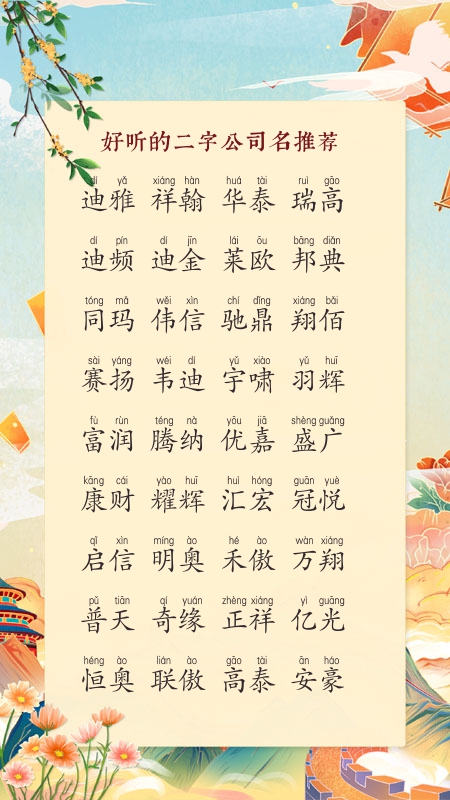 好听的二字公司名推荐
dí yǎ xiáng hàn huá tài ruì gāo
迪雅 祥翰 华泰 瑞高
dí pín dí jīn lái ōu bāng diǎn
迪频 迪金 莱欧 邦典
tóng mǎ wěi xìn chí dǐng xiáng bǎi
同玛 伟信 驰鼎 翔佰
sài yáng wéi dí yǔ xiào yǔ huī
赛扬 韦迪 宇啸 羽辉
fù rùn téng nà yōu jiā shèng guǎng
富润 腾纳 优嘉 盛广
kāng cái yào huī huì hóng guān yuè
康财 耀辉 汇宏 冠悦
qǐ xìn míng ào hé ào wàn xiáng
启信 明奥 禾傲 万翔
pǔ tiān qí yuán zhèng xiáng yì guāng
普天 奇缘 正祥 亿光
héng ào lián ào gāo tài ān háo
恒奥 联傲 高泰 安豪